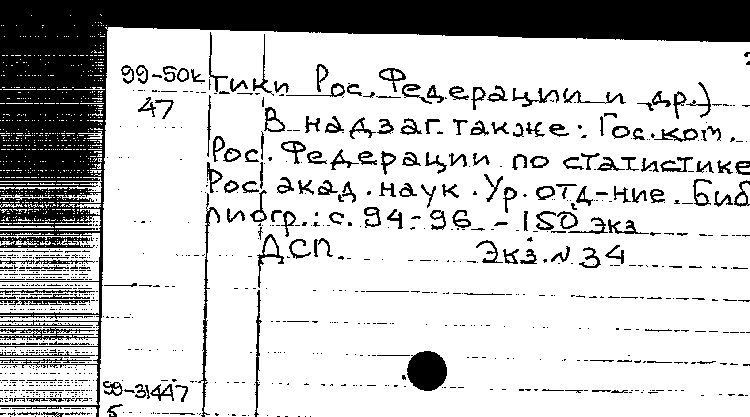 99-50к тики Рос. Федерации и др.)
47 В надзаг. также: Гос. ком.
Рос. Федерации по статистике
Рос. акад. наук. Ур. отд-ние. Биб
лиогр.: с. 94-96 - 150 экз
ДСП. Экз. N 34
99-31447